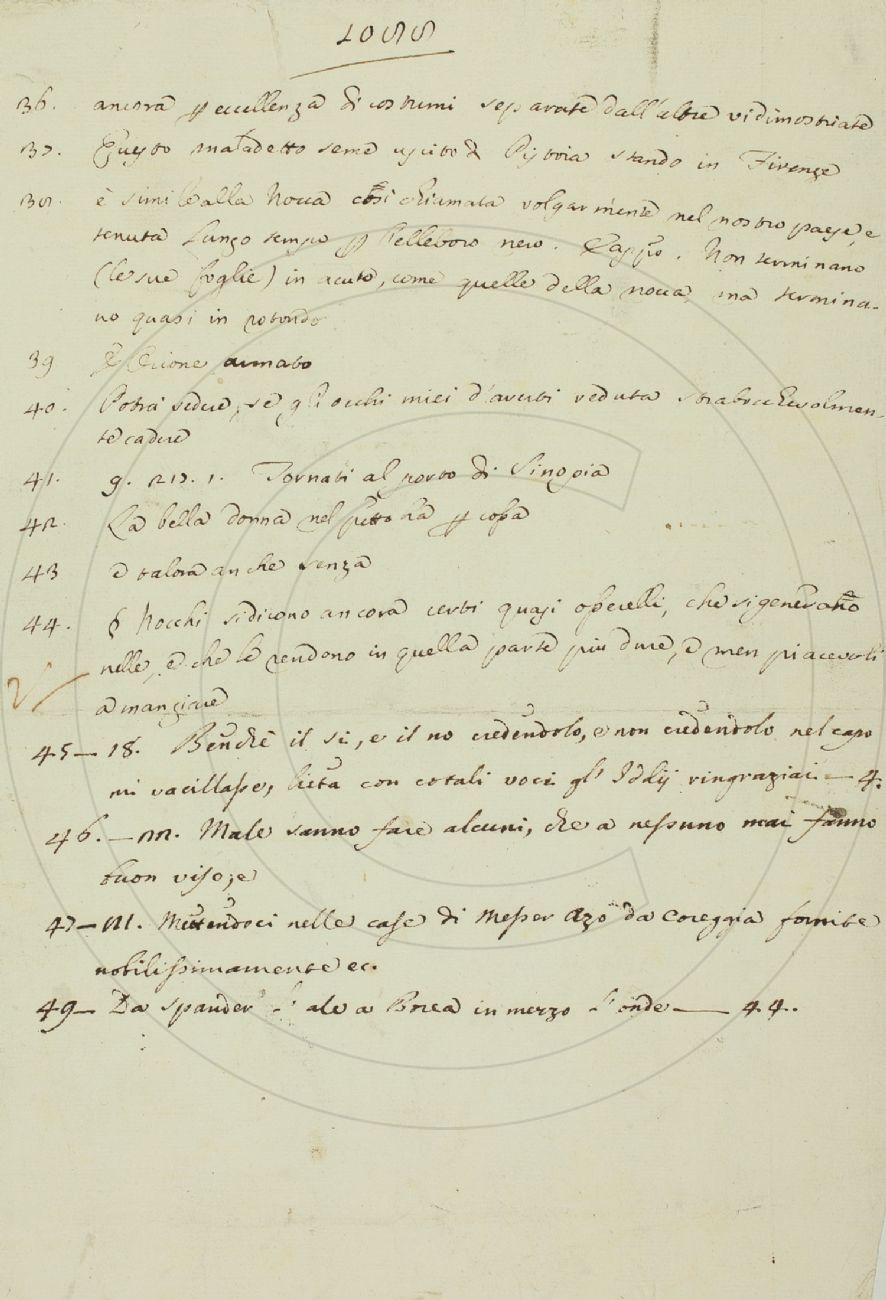 36. ancora p eccellenza di costumi separate dall'altre vi dimostriate
37. Questo maladetto seme uscito di Pistoia stando in Firenze
38. è simile alla Nocca così chiamata volgarmente nel nostro paese, e
tenuta lungo tempo p l'elleboro nero. Non terminano
(le sue foglie) in acuto, come quelle della nocca, ma termina-
no quasi in rotondo
39 armato
40. Potrà vedere, se gli occhi miei d'averti veduta strabocchevolmen-
te cadere
41. g. 217. 1. Tornati al porto di Sinopia
42. La bella donna nel petto
43 e talora anche senza
44. Nocchi si dicono ancora certi quasi osserelli, che si generano
nelle, e che le rendono in quella parte più dure, e men piacevoli
a mangiare
45– 18. Benchè il si, e il no credendolo, e non credendolo nel capo
mi vacillasse, lieta con cotali voci gl' Iddij ringraziai — 4.
46. – m. Male sanno fare alcuni, che a nessuno mai fanno
buon viso, e
47– M. Mettendoci nelle case di Messer Azo da Coreggia fornite
nobilissimamente ec.
49– Da spander l'ale a Borea in mezzo l'onde — 44.